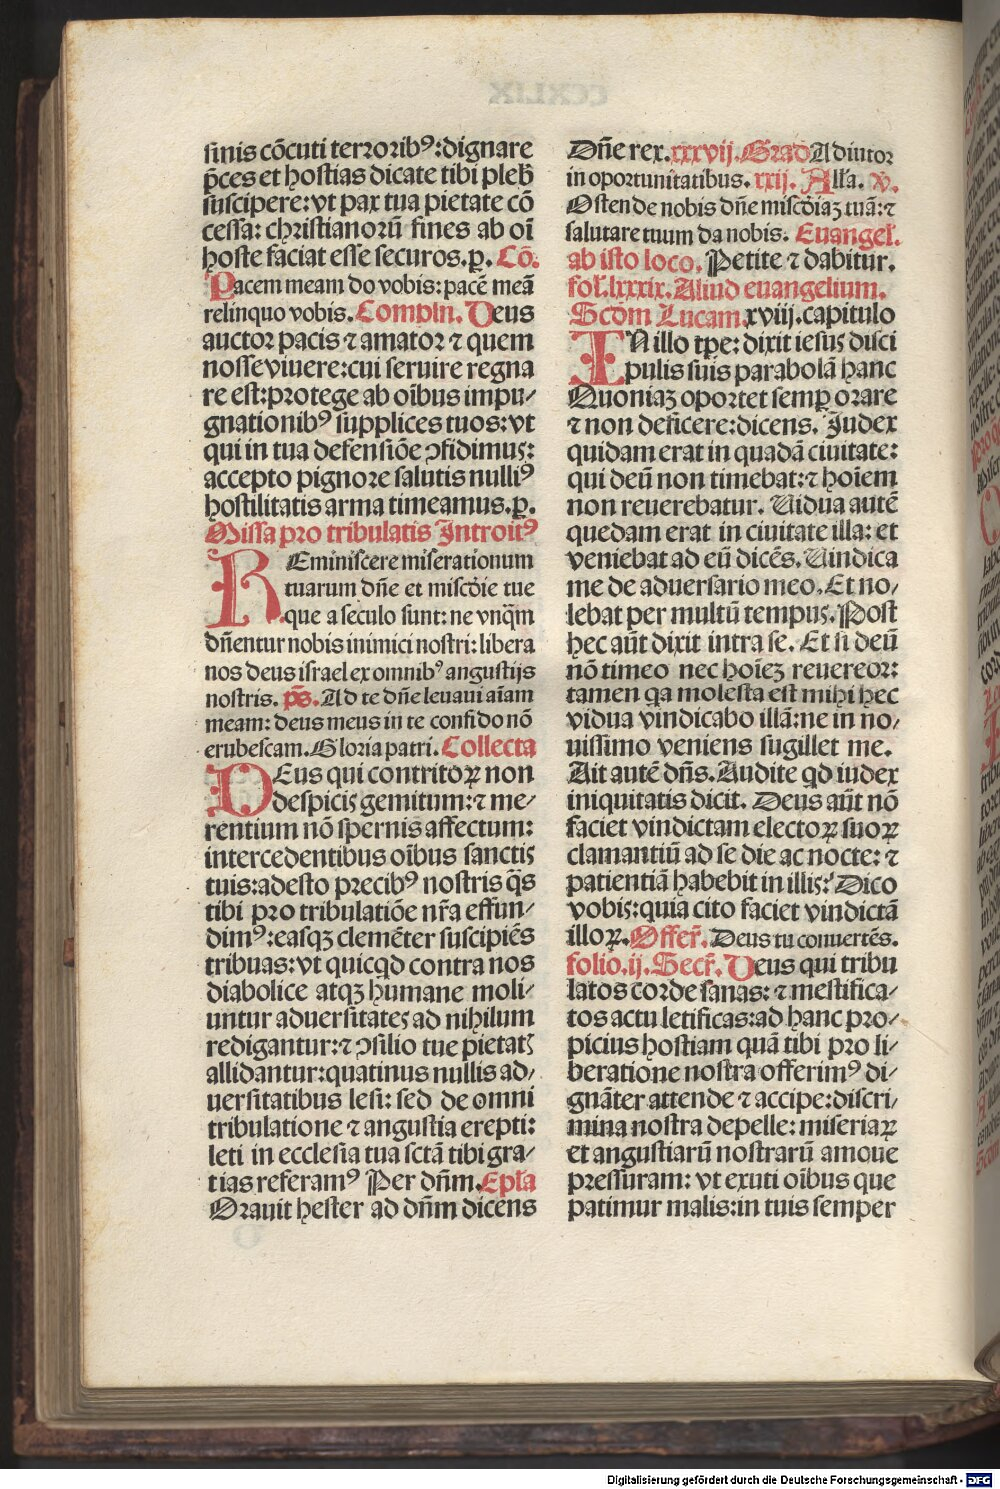 sinis cõcuti terroribꝰ: dignare
p̃ces et hostias dicate tibi pleb̃
suscipere: vt pax tua pietate cõ
cessa: christianorũ fines ab oĩ
hoste faciat esse securos. ꝑ. Cõ.
Pacem meam do vobis: pacẽ meã
relinquo vobis. Compln. Deus
auctor pacis ⁊ amator ⁊ quem
nosse viuere: cui seruire regna
re est: protege ab oĩbus impu⸗
gnationibꝰ supplices tuos: vt
qui in tua defensiõe ꝯfidimus:
accepto pignore salutis nulliꝰ
hostilitatis arma timeamus. ꝑ.
Missa pro tribulatis Introitꝰ
REminiscere miserationum
tuarum dñe et misc̃die tue
que a seculo sunt: ne vnq̃m
dñentur nobis inimici nostri: libera
nos deus israel ex omnibꝰ angustijs
nostris. p̃s. Ad te dñe leuaui aĩam
meam: deus meus in te confido nõ
erubescam. Gloria patri. Collecta
DEus qui contritoꝝ non
despicis gemitum: ⁊ me⸗
rentium nõ spernis affectum:
intercedentibus oĩbus sanctis
tuis: adesto precibꝰ nostris q̃s
tibi pro tribulatiõe nr̃a effun⸗
dimꝰ: easqꝫ clemẽter suscipiẽs
tribuas: vt quicq̃d contra nos
diabolice atqꝫ humane moli⸗
untur aduersitates ad nihilum
redigantur: ⁊ ꝯsilio tue pietatꝭ
allidantur: quatinus nullis ad⸗
uersitatibus lesi: sed de omni
tribulatione ⁊ angustia erepti:
leti in ecclesia tua sctã tibi gra⸗
tias referamꝰ Per dñm. Epl̃a
Orauit hester ad dñm dicens
Dñe rex. xxxvij. Grad Adiutor
in oportunitatibus. xxij. All̃a. ꝟ.
Ostende nobis dñe misc̃diaꝫ tuã: ⁊
salutare tuum da nobis. Euangel̃.
ab isto loco. Petite ⁊ dabitur.
fol̃. lxxxix. Aliud euangelium.
Scdm̃ Lucam. xviij. capitulo
IN illo tꝑe: dixit iesus disci
pulis suis parabolã hanc
Quoniaꝫ oportet semꝑ orare
⁊ non deficere: dicens. Iudex
quidam erat in quadã ciuitate:
qui deũ non timebat: ⁊ hoĩem
non reuerebatur. Uidua autẽ
quedam erat in ciuitate illa: et
veniebat ad eũ dicẽs. Uindica
me de aduersario meo. Et no⸗
lebat per multũ tempus. Post
hec aũt dixit intra se. Et si deũ
nõ timeo nec hoĩeꝫ reuereor:
tamen qa molesta est mihi hec
vidua vindicabo illã: ne in no⸗
uissimo veniens sugillet me.
Ait autẽ dñs. Audite qd iudex
iniquitatis dicit. Deus aũt nõ
faciet vindictam electoꝝ suoꝝ
clamantiũ ad se die ac nocte: ⁊
patientiã habebit in illis: Dico
vobis: quia cito faciet vindictã
illoꝝ. Offer̃. Deus tu conuertẽs.
folio. ij. Secr̃. Deus qui tribu
latos corde sanas: ⁊ mestifica⸗
tos actu letificas: ad hanc pro⸗
picius hostiam quã tibi pro li⸗
beratione nostra offerimꝰ di⸗
gnãter attende ⁊ accipe: discri⸗
mina nostra depelle: miseriaꝝ
et angustiarũ nostrarũ amoue
pressuram: vt exuti oĩbus que
patimur malis: in tuis semper
Digitalisierung gefördert durch die Deutsche Forschungsgemeinschaft - DFG